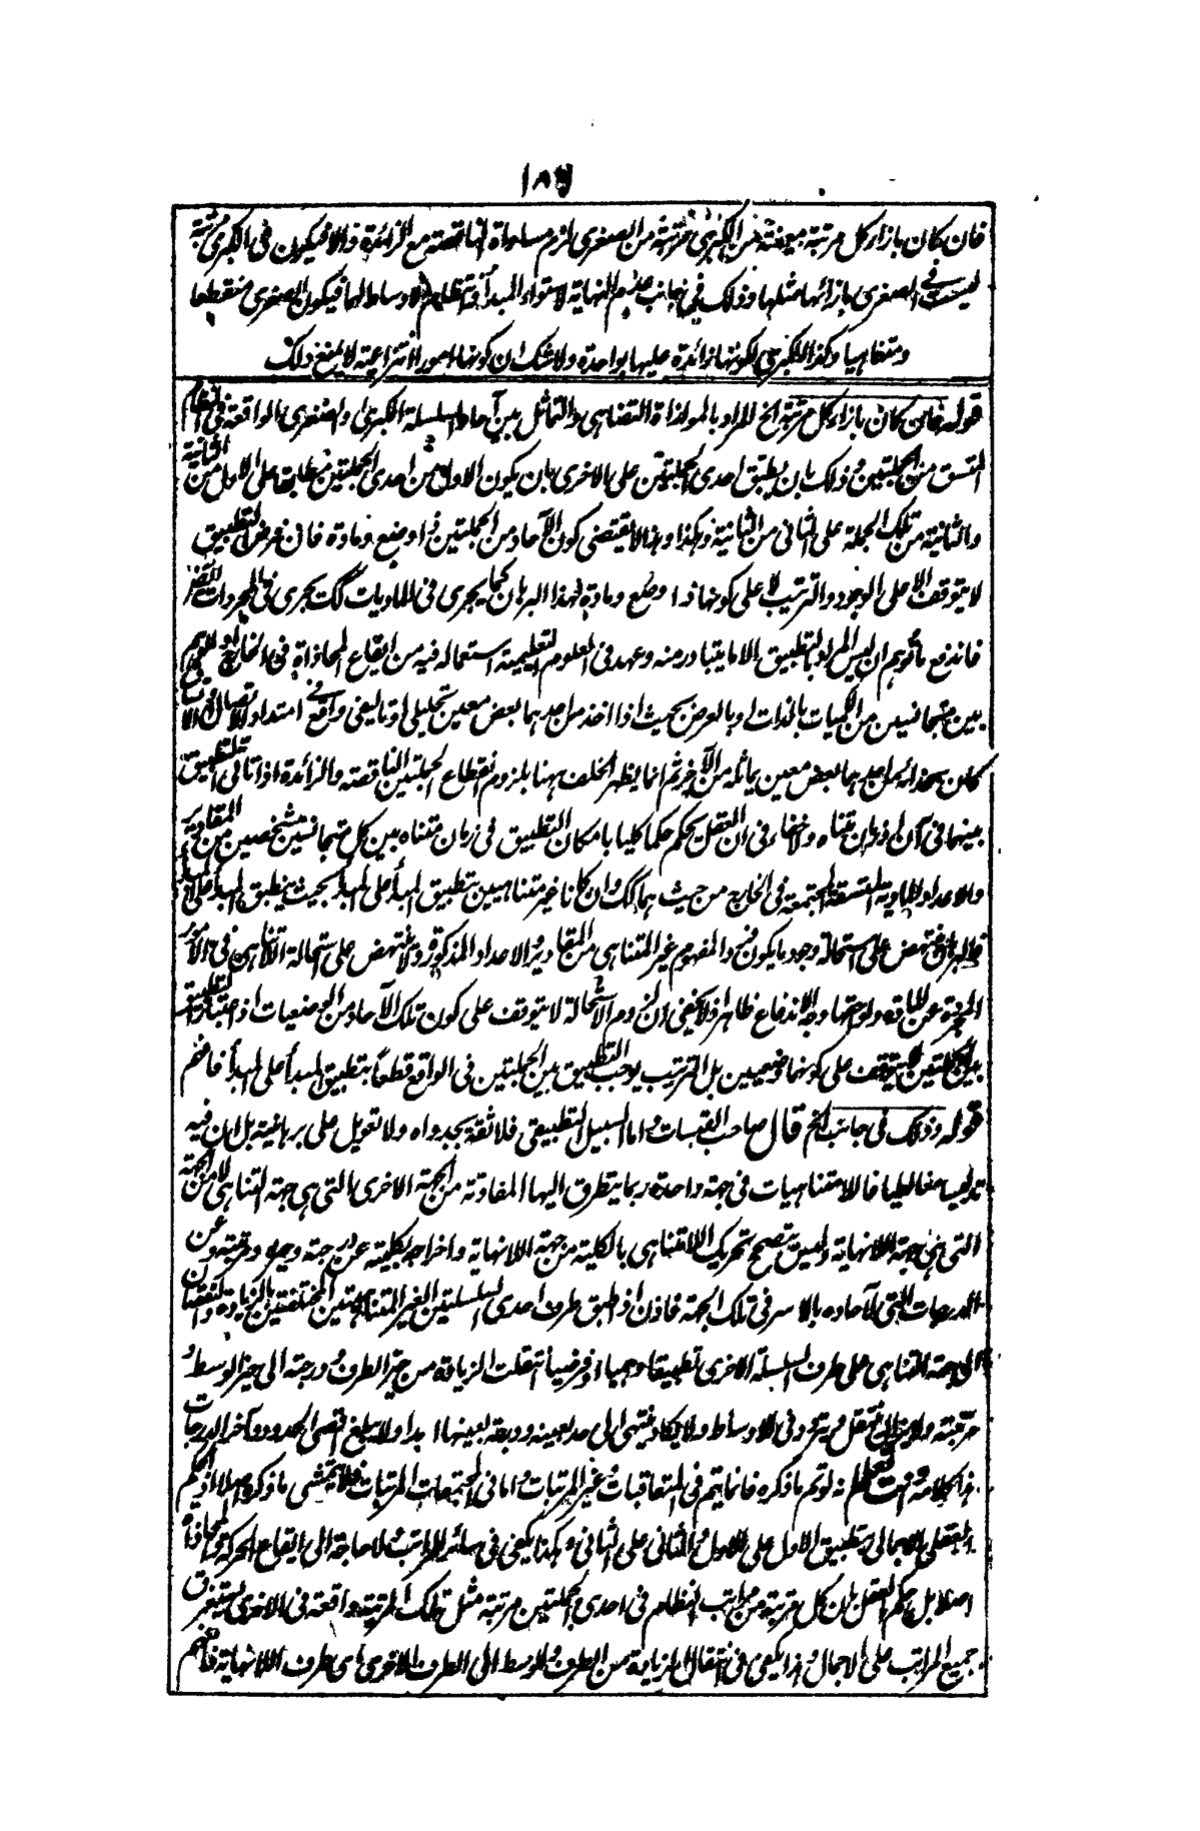 ١٨٧
فان كان بازاء كل مرتبة معينة من الكبرى مرتبة من الصغرى لزم مساواة الناقصة مع الزائدة والا فيكون فى الكبرى مرتبة
ليست فى الصغرى بازائها مثلها وذلك فى جانب عدم النهاية لاستواء المبدأ وانتظام الاوساط لهما فيكون الصغرى منقطعا
ومتناهيا وكذا الكبرى لكونها زائدة عليها بواحدة ولا شك ان كونها امورا انتزاعية لا يمنع ذلك
قوله فان كان بازاء كل مرتبة الخ المراد بالموازاة التضاهى والتماثل بين آحاد السلسلة الكبرى والصغرى الواقعة فى النظام
المتسق من الجملتين وذلك بان يطبق احدى الجملتين على الاخرى بان يكون الاول من احدى الجملتين منطبقا على الاول من الثانية
والثانية من تلك الجملة على الثانى من الثانية وهكذا وهذا لا يقتضى كون الآحاد من الجملتين ذا وضع ومادة فان فرض التطبيق
لا يتوقف الا على الوجود والترتيب لا على كونها ذا وضع ومادة فهذا البرهان كما يجرى فى الماديات كك يجرى فى المجردات
فاندفع ما توهم ان ليس المراد بالتطبيق الا ما يتبادر منه وعهد فى العلوم التعليمية استعماله فيه من ايقاع المحاذاة فى الخارج او الوهم
بين متجانسين من الكميات بالذات او بالعرض بحيث اذا اخذ من احدهما بعض معين تحليلى او تاليفى واقع فى امتداد الاتصال
كان بحذائه من احدهما بعض معين يماثله من الآخر ثم انما يظهر الخلف ههنا بلزوم انقطاع الجملتين الناقصة والزائدة اذا تاتى التطبيق
بينهما فى آن او زمان متناه ولا خفاء فى ان العقل يحكم حكما كليا بامكان التطبيق فى زمان متناه بين كل متجانسين مشخصين من المقادير
والاعداد المادية المتسقة المجتمعة فى الخارج من حيث هما كك وان كانا غير متناهيين بتطبيق المبدأ على المبدأ بحيث ينطبق المبدأ على
فالبرهان ينتهض على استحالة وجود ما يكون والمفهوم غير المتناهى من المقادير والاعداد المذكورة ولا ينتهض على استحالة اللاتناهى فى الامور
المجردة عن المادة ولواحقها وجه الاندفاع ظاهر اذ لا يخفى ان لزوم الاستحالة لا يتوقف على كون تلك الآحاد من الوضعيات اذ اعتبار التطبيق
بين الجملتين لا يتوقف على كونهما وضعيين بل الترتيب يوجب التطبيق بين الجملتين فى الواقع قطعاً بتطبيق المبدأ على المبدأ فافهم
قوله وذلك فى جانب الخ قال صاحب القبسات واما السبيل التطبيقى فلا ثقة بجدواه ولا تعويل على برهانيته بل ان فيه
تدليسا مغالطيا فاللامتناهيات فى جهة واحدة ربما يتطرق اليها المفاوتة من الجهة الاخرى التى هى جهة التناهى لا من الجهة
التى هى جهة اللانهاية وليس يتصحح تحريك اللامتناهى بالكلية من جهة اللانهاية واخراجه بكليته عن درجته وحيزه ومرتبته وعن
الدرجات التى لآحاده بالاسر فى تلك الجهة فاذن اذا طبق طرف احدى السلسلتين الغير المتناهيتين المختلفتين بالزيادة والنقصان
فى جهة التناهى على طرف السلسلة الاخرى تطبيقا وهميا او فرضيا انتقلت الزيادة من حيز الطرف ودرجته الى حيز الوسط و
مرتبته ولا يزال ينتقل ويتردد فى الاوساط ولا يكاد ينتهى الى حد بعينه ودرجة بعينها ابدا ولا يبلغ اقصى الحدود وآخر الدرجات
هذا كلامه وانت تعلم انه لو تم ما ذكره فانما يتم فى المتعاقبات وغير المرتبات واما فى المجتمعات المرتبات فلا يتمشى ما ذكره اصلا اذ يحكم
العقل الاجمالى بتطبيق الاول على الاول والثانى على الثانى وهكذا يكفى فى سائر المراتب ولا حاجة الى ايقاع الحركة والمحاذاة
اصلا بل يحكم العقل بان كل مرتبة من مراتب النظام فى احدى الجملتين مرتبة مثل تلك المرتبة واقعة فى الاخرى يستغرق
جميع المراتب على الاجمال وهذا يكفى فى انتقال الزيادة من الطرف والوسط الى الطرف الاخرى اى طرف اللانهاية فافهم